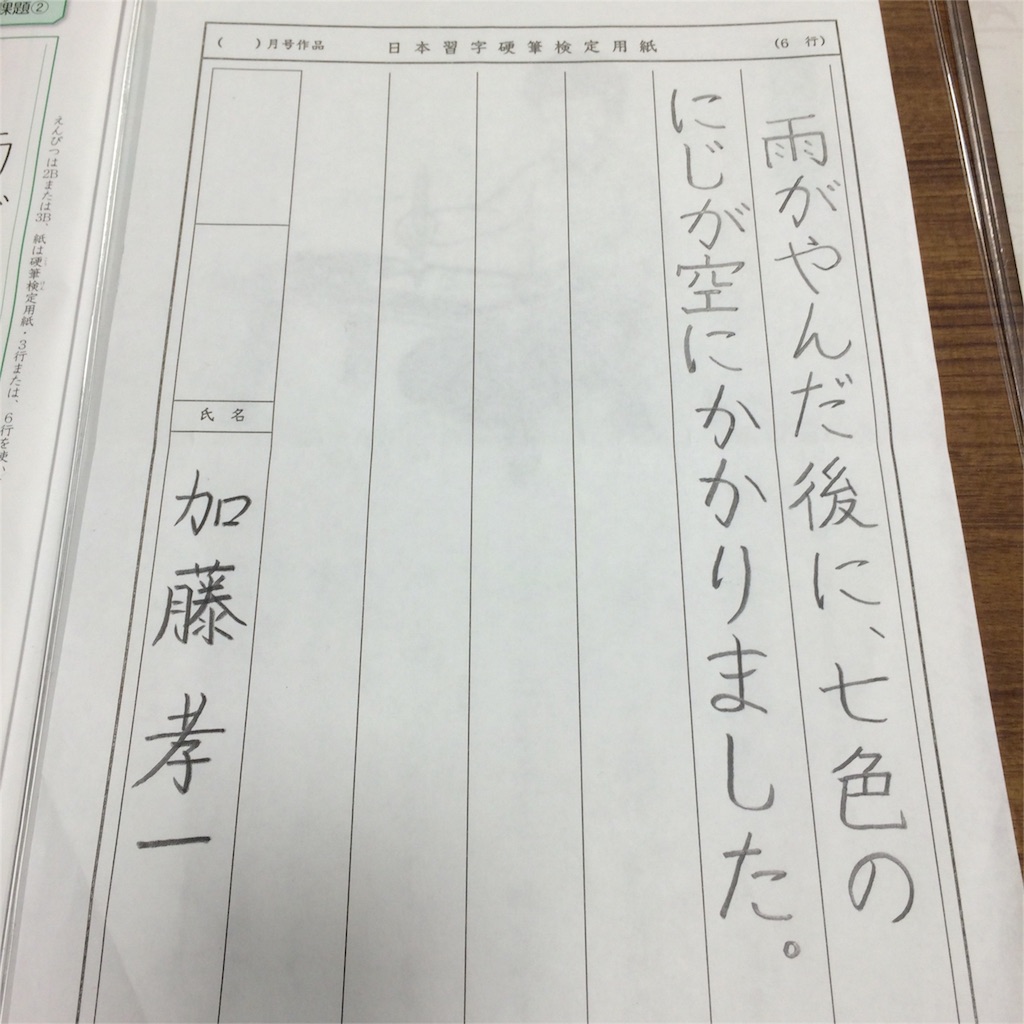 課題②
えんぴつは2Bまたは3B、紙は硬筆検定用紙・3行または、6行を使い
( )月号作品 日本習字硬筆検定用紙 (6 行)
雨がやんだ後に、七色の
にじが空にかかりました。
氏名
加藤孝一